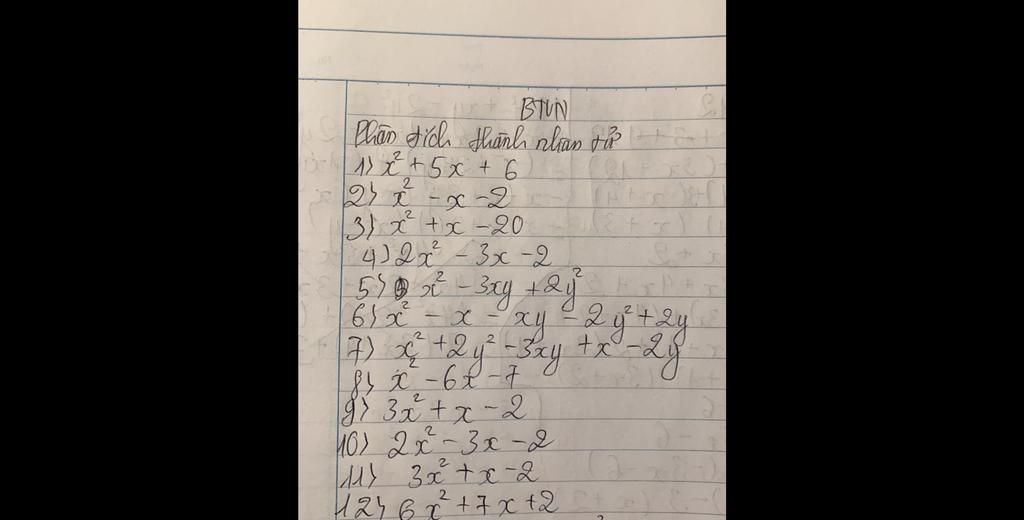 BTVN
Phân tích thành nhân tử
1) x² + 5x + 6
2) x² - x - 2
3) x² + x - 20
4) 2x² - 3x - 2
5) x² - 3xy + 2y²
6) x² - x - xy - 2y² + 2y
7) x² + 2y² - 3xy + x - 2y
8) x² - 6x - 7
9) 3x² + x - 2
10) 2x² - 3x - 2
11) 3x² + x - 2
12) 6x² + 7x + 2